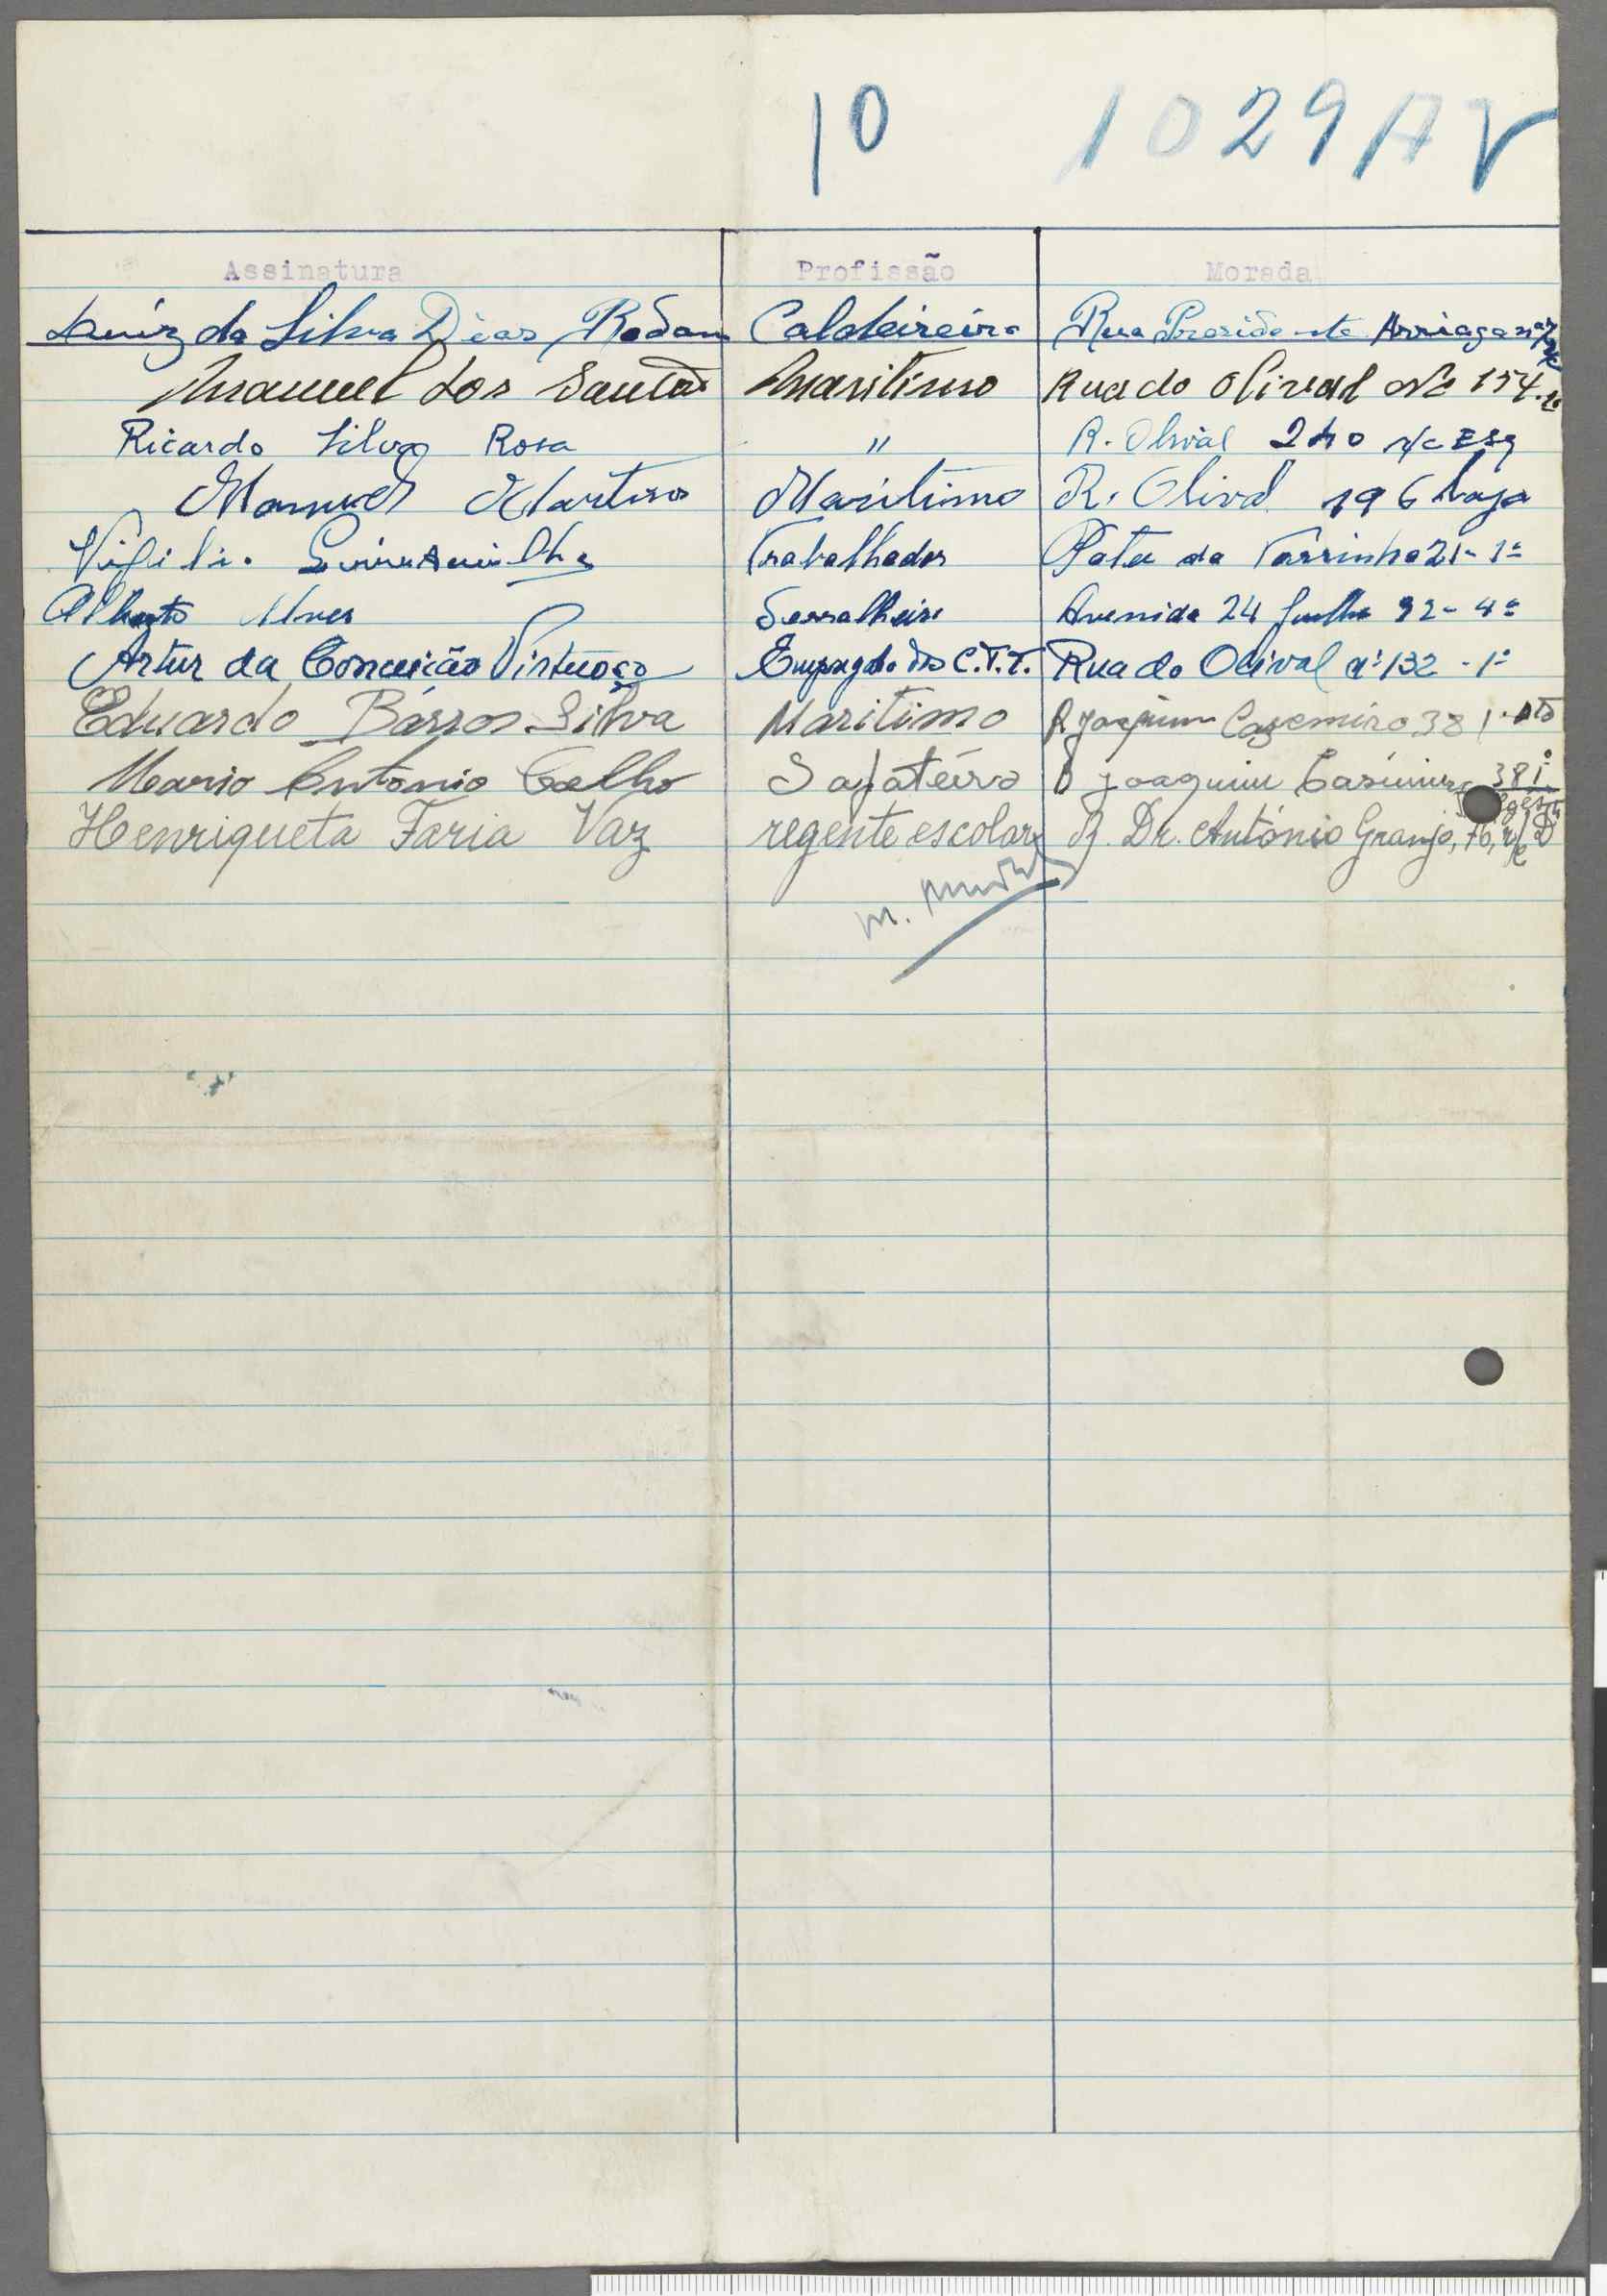 10 1029 AV
Assinatura Profissão Morada
Luíz da Silva Dias Caldeireiro Rua Presidente Arriaga
Manuel dos Santos Maritimo Rua do Olival Nº 154
Ricardo Silva Rosa " R. Olival 240 r/c Esq
Manuel Martins Maritimo R. Olival 196 loja
Trabalhador Pateo da 21-1º
Alberto Alves Serralheiro Avenida 24 Julho 92-4º
Artur da Conceição Virtuoso Empregado dos C.T.T. Rua do Olival nº 132-1º
Eduardo Bárros Silva Maritimo R Joaquim Casemiro 38 1º
Mario Antonio Coelho Sapateiro R Joaquim Casimiro 38 1º
Henriqueta Faria Vaz regente escolar R. Dr. António Granjo, 16, r/c D
M.